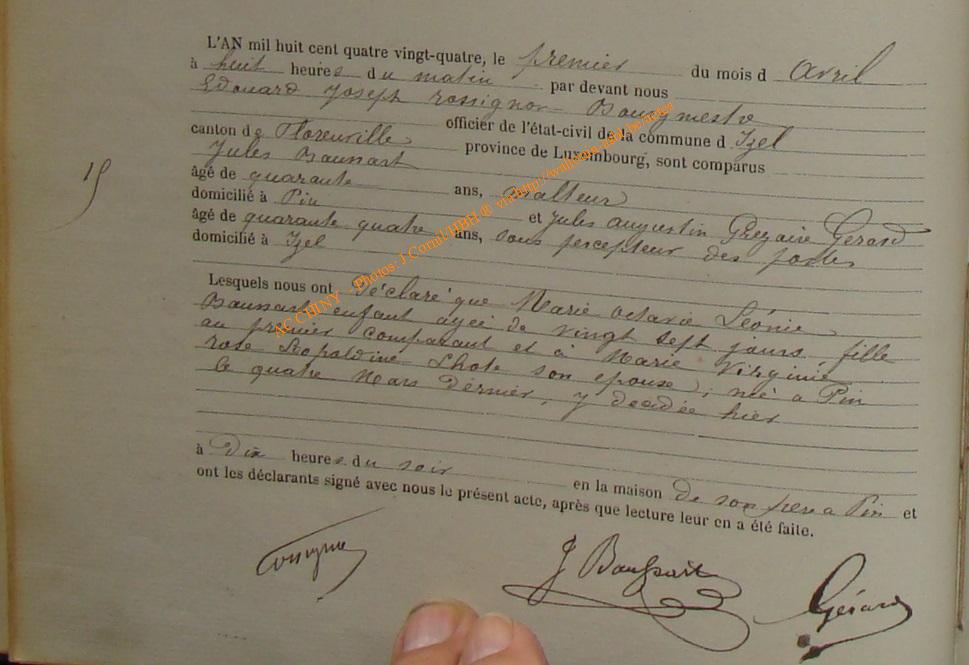 L'AN mil huit cent quatre vingt-quatre, le premier du mois d Avril
à huit heures du matin par devant nous
Edouard Joseph Rossignon Bourgmestre
officier de l'état-civil de la commune d Izel
canton de Florenville province de Luxembourg, sont comparus
Jules Baussart
âgé de quarante ans, Malteur
domicilié à Pin et Jules Augustin Grégoire Gerard
âgé de quarante quatre ans, sous percepteur des postes
domicilié à Izel
15
Lesquels nous ont déclaré que Marie Octavie Léonie
Baussart enfant agée de vingt sept jours fille
au premier comparant et à Marie Virginie
rose Léopoldine Lhote son epouse, né a Pin
le quatre Mars dernier, y decedée hier
à Dix heures du soir en la maison de son pere a Pin et
ont les déclarants signé avec nous le présent acte, après que lecture leur en a été faite.
Rossignon
J Baussart
Gérard
ACCHINY - Photos: J.Cornil/HBH @ via http://wallonia-asbl.be/actes